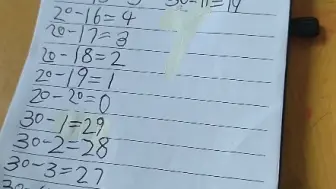 30-11=19
20-16=4
20-17=3
20-18=2
20-19=1
20-20=0
30-1=29
30-2=28
30-3=27